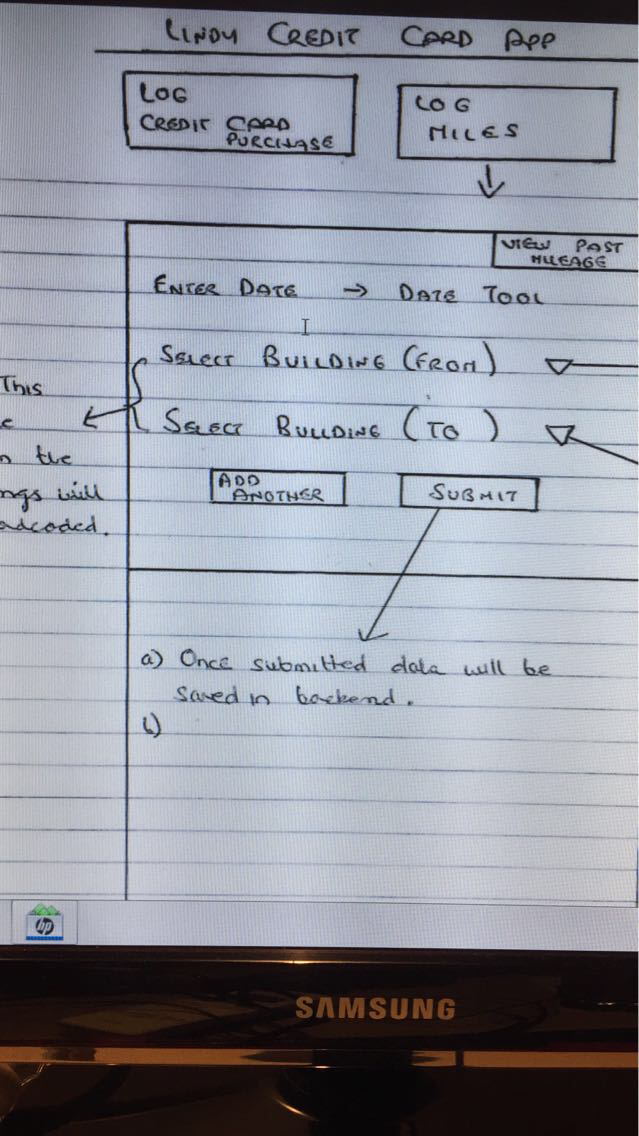 LINDY CREDIT CARD APP
LOG
CREDIT CARD
PURCHASE
LOG
MILES
VIEW PAST
MILEAGE
ENTER DATE → DATE TOOL
SELECT BUILDING (FROM)
This
SELECT BUILDING (TO)
the
ADD
ANOTHER
SUBMIT
will
a) Once submitted data will be
saved in backend.
b)
hp
SAMSUNG